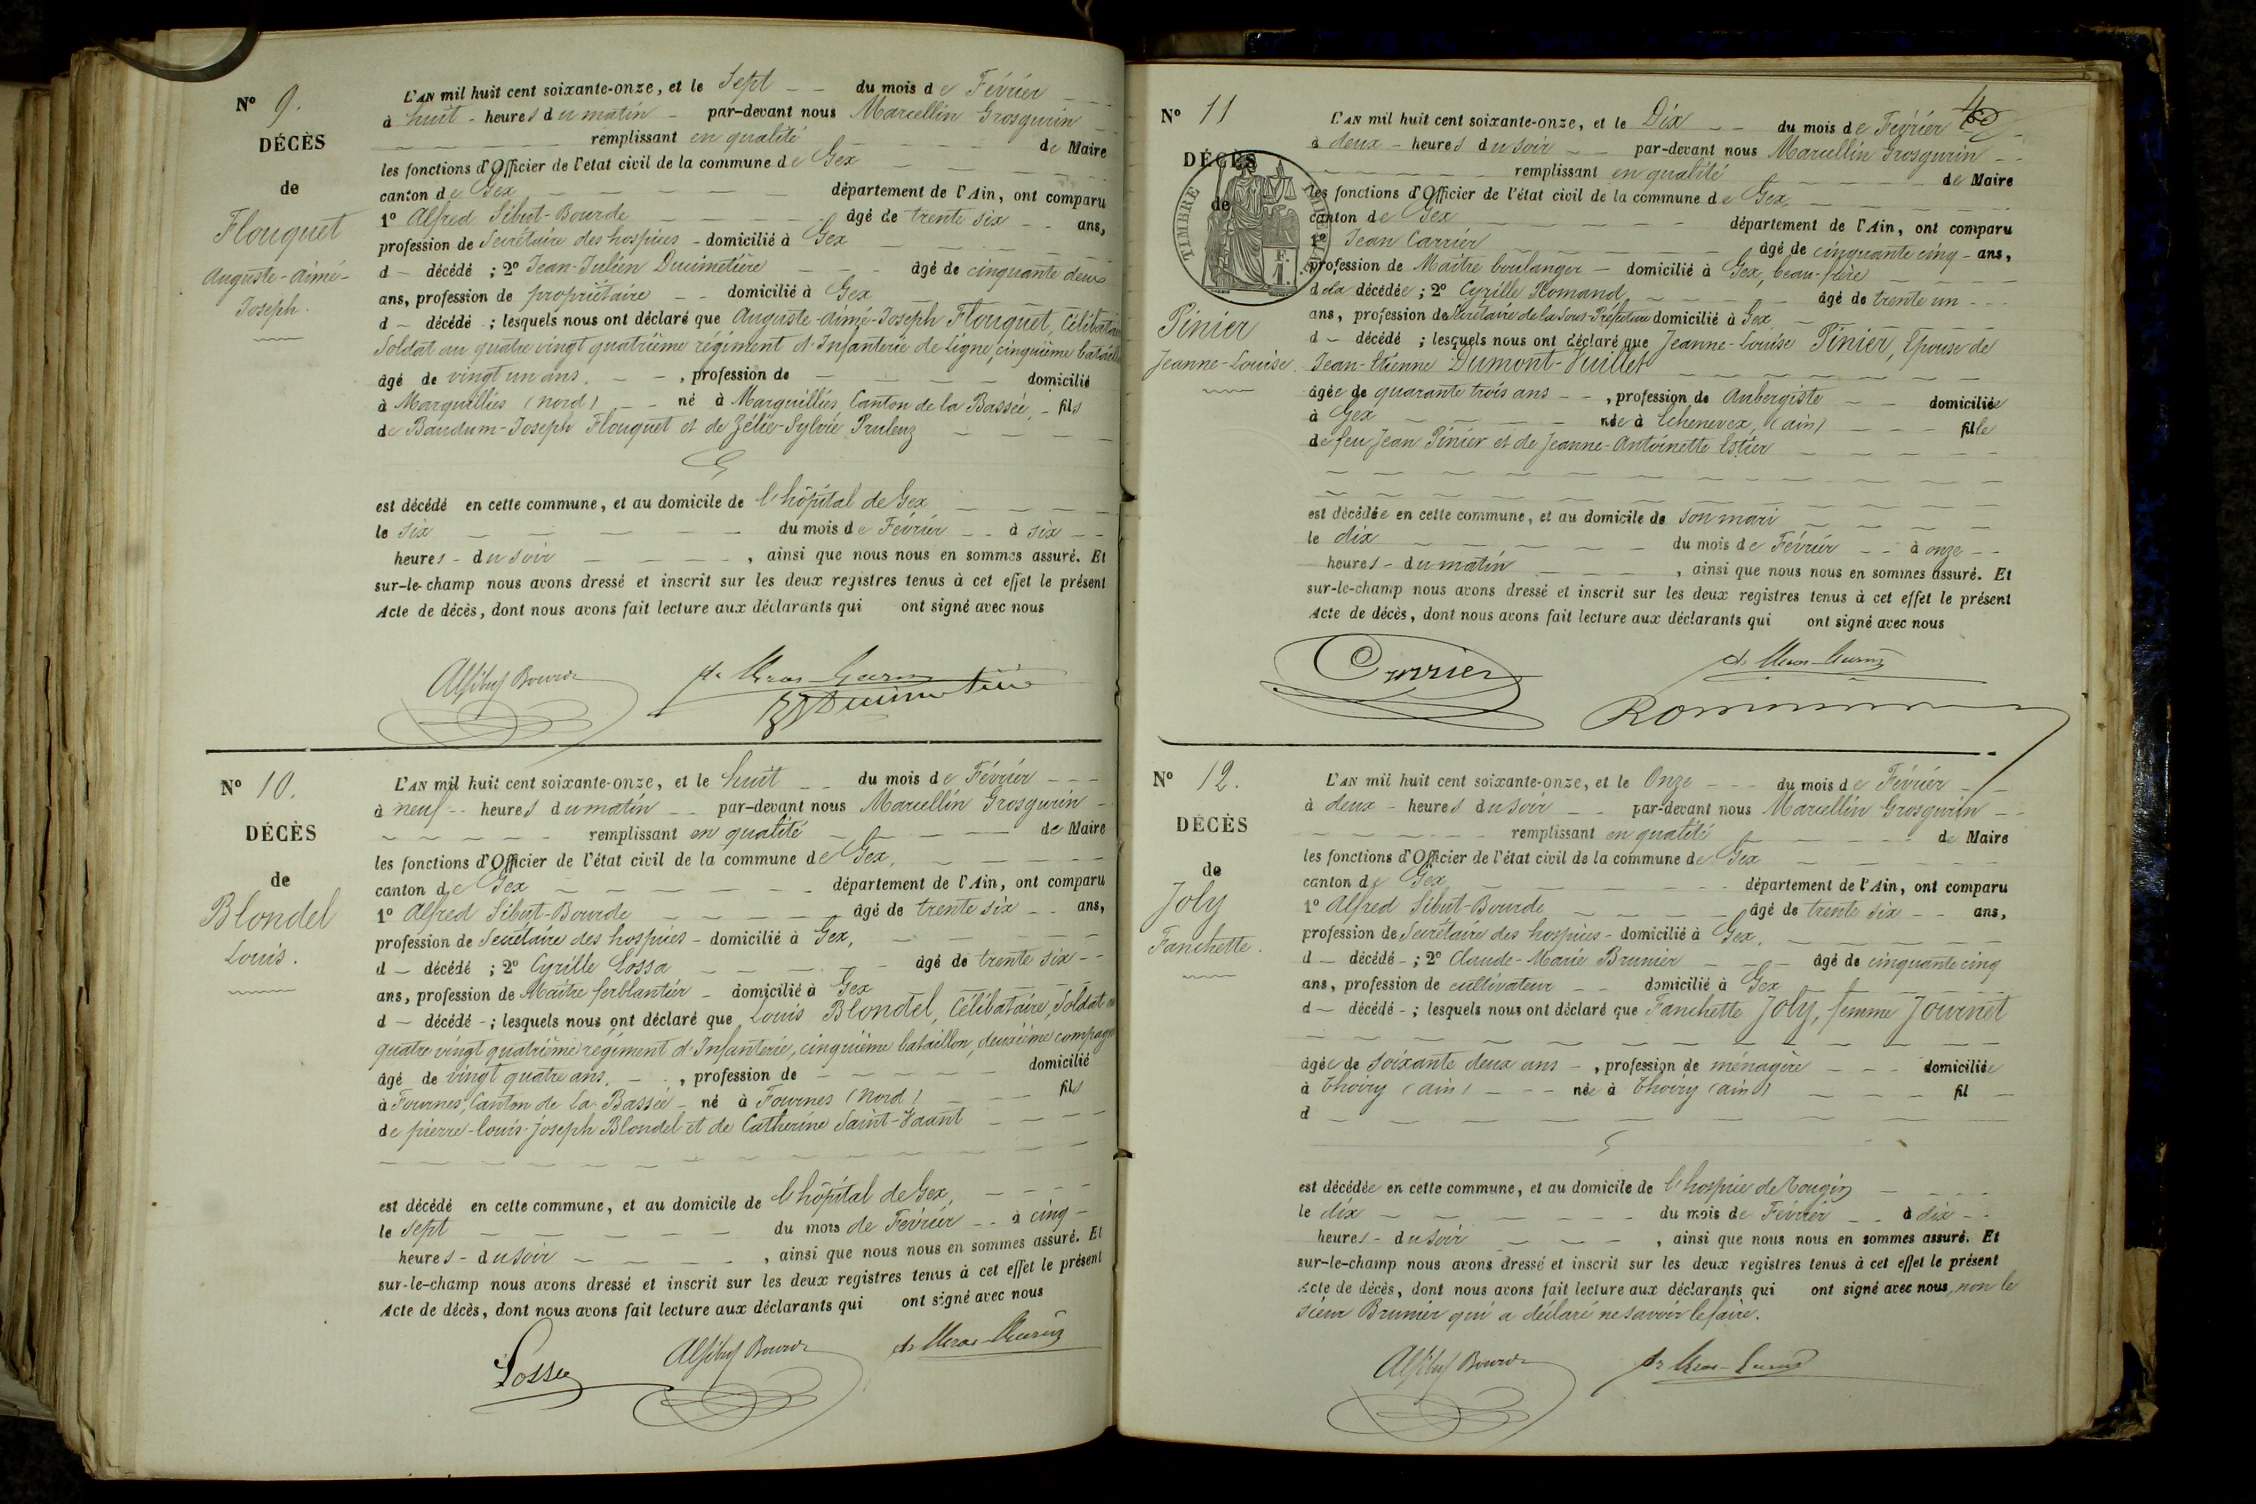 N° 9.
DÉCÈS
de
Flouquet
Auguste-Aimé-
Joseph.
L'AN mil huit cent soixante-onze, et le Sept du mois de Février
à huit heures du matin par-devant nous Marcellin Grosgurin
remplissant en qualité de Maire
les fonctions d'Officier de l'état civil de la commune de Gex
canton de Gex département de l'Ain, ont comparu
1° Alfred Sibut-Bourde âgé de trente six ans,
profession de Secrétaire des hospices - domicilié à Gex
d décédé ; 2° Jean-Julien Ducimetière âgé de cinquante deux
ans, profession de propriétaire domicilié à Gex
d décédé ; lesquels nous ont déclaré que Auguste-Aimé-Joseph Flouquet, Célibataire
Soldat au quatre vingt quatrième régiment d'Infanterie de Ligne, cinquième bataillon
âgé de vingt un ans, profession de domicilié
à Marquillies (Nord) né à Marquillies, Canton de la Bassée, fils
de Baudum-Joseph Flouquet et de Zélie-Sylvie
est décédé en cette commune, et au domicile de l'hôpital de Gex
le six du mois de Février à six
heures du soir, ainsi que nous nous en sommes assuré. Et
sur-le-champ nous avons dressé et inscrit sur les deux registres tenus à cet effet le présent
Acte de décès, dont nous avons fait lecture aux déclarants qui ont signé avec nous
ASibut Bourde
Ducimetière
N° 10.
DÉCÈS
de
Blondel
Louis.
L'AN mil huit cent soixante-onze, et le huit du mois de Février
à neuf heures du matin par-devant nous Marcellin Grosgurin
remplissant en qualité de Maire
les fonctions d'Officier de l'état civil de la commune de Gex,
canton de Gex département de l'Ain, ont comparu
1° Alfred Sibut-Bourde âgé de trente six ans,
profession de Secrétaire des hospices - domicilié à Gex,
d décédé ; 2° Cyrille Lossa âgé de trente six
ans, profession de Maître ferblantier domicilié à Gex
d décédé ; lesquels nous ont déclaré que Louis Blondel, Célibataire, Soldat au
quatre vingt quatrième régiment d'Infanterie, cinquième bataillon, deuxième compagnie
âgé de vingt quatre ans, profession de domicilié
à Fournes, Canton de La Bassée né à Fournes (Nord) fils
de pierre-louis-joseph Blondel et de Catherine
est décédé en cette commune, et au domicile de l'hôpital de Gex,
le sept du mois de Février à cinq
heures du soir, ainsi que nous nous en sommes assuré. Et
sur-le-champ nous avons dressé et inscrit sur les deux registres tenus à cet effet le présent
Acte de décès, dont nous avons fait lecture aux déclarants qui ont signé avec nous
Lossa
ASibut Bourde
N° 11
DÉCÈS
de
Pinier
Jeanne-Louise.
TIMBRE
F.
1.
L'AN mil huit cent soixante-onze, et le Dix du mois de Février
à deux heures du soir par-devant nous Marcellin Grosgurin
remplissant en qualité de Maire
les fonctions d'Officier de l'état civil de la commune de Gex
canton de Gex département de l'Ain, ont comparu
1° Jean Carrier âgé de cinquante cinq ans,
profession de Maître boulanger domicilié à Gex, beau-frère
de la décédée ; 2° Cyrille Romand âgé de trente un
ans, profession de Secrétaire de la Sous-Préfecture domicilié à Gex
d décédé ; lesquels nous ont déclaré que Jeanne-Louise Pinier, Epouse de
Jean-Etienne Dumont-Vuillet
âgée de quarante trois ans, profession de Aubergiste domiciliée
à Gex née à Echenevex, (ain) fille
de feu Jean Pinier et de Jeanne-Antoinette Estier
est décédée en cette commune, et au domicile de son mari
le dix du mois de Février à onze
heures du matin, ainsi que nous nous en sommes assuré. Et
sur-le-champ nous avons dressé et inscrit sur les deux registres tenus à cet effet le présent
Acte de décès, dont nous avons fait lecture aux déclarants qui ont signé avec nous
Carrier
Romand
N° 12.
DÉCÈS
de
Joly
Fanchette.
L'AN mil huit cent soixante-onze, et le Onze du mois de Février
à deux heures du soir par-devant nous Marcellin Grosgurin
remplissant en qualité de Maire
les fonctions d'Officier de l'état civil de la commune de Gex
canton de Gex département de l'Ain, ont comparu
1° Alfred Sibut-Bourde âgé de trente six ans,
profession de Secrétaire des hospices - domicilié à Gex,
d décédé ; 2° Claude-Marie Brunier âgé de cinquante cinq
ans, profession de cultivateur domicilié à Gex
d décédé ; lesquels nous ont déclaré que Fanchette Joly, femme Journet
âgée de soixante deux ans, profession de ménagère domiciliée
à Thoiry (ain) née à Thoiry (ain) fil
d
est décédée en cette commune, et au domicile de l'hospice de Tougin
le dix du mois de Février à dix
heures du soir, ainsi que nous nous en sommes assuré. Et
sur-le-champ nous avons dressé et inscrit sur les deux registres tenus à cet effet le présent
Acte de décès, dont nous avons fait lecture aux déclarants qui ont signé avec nous, non le
sieur Brunier qui a déclaré ne savoir le faire.
ASibut Bourde